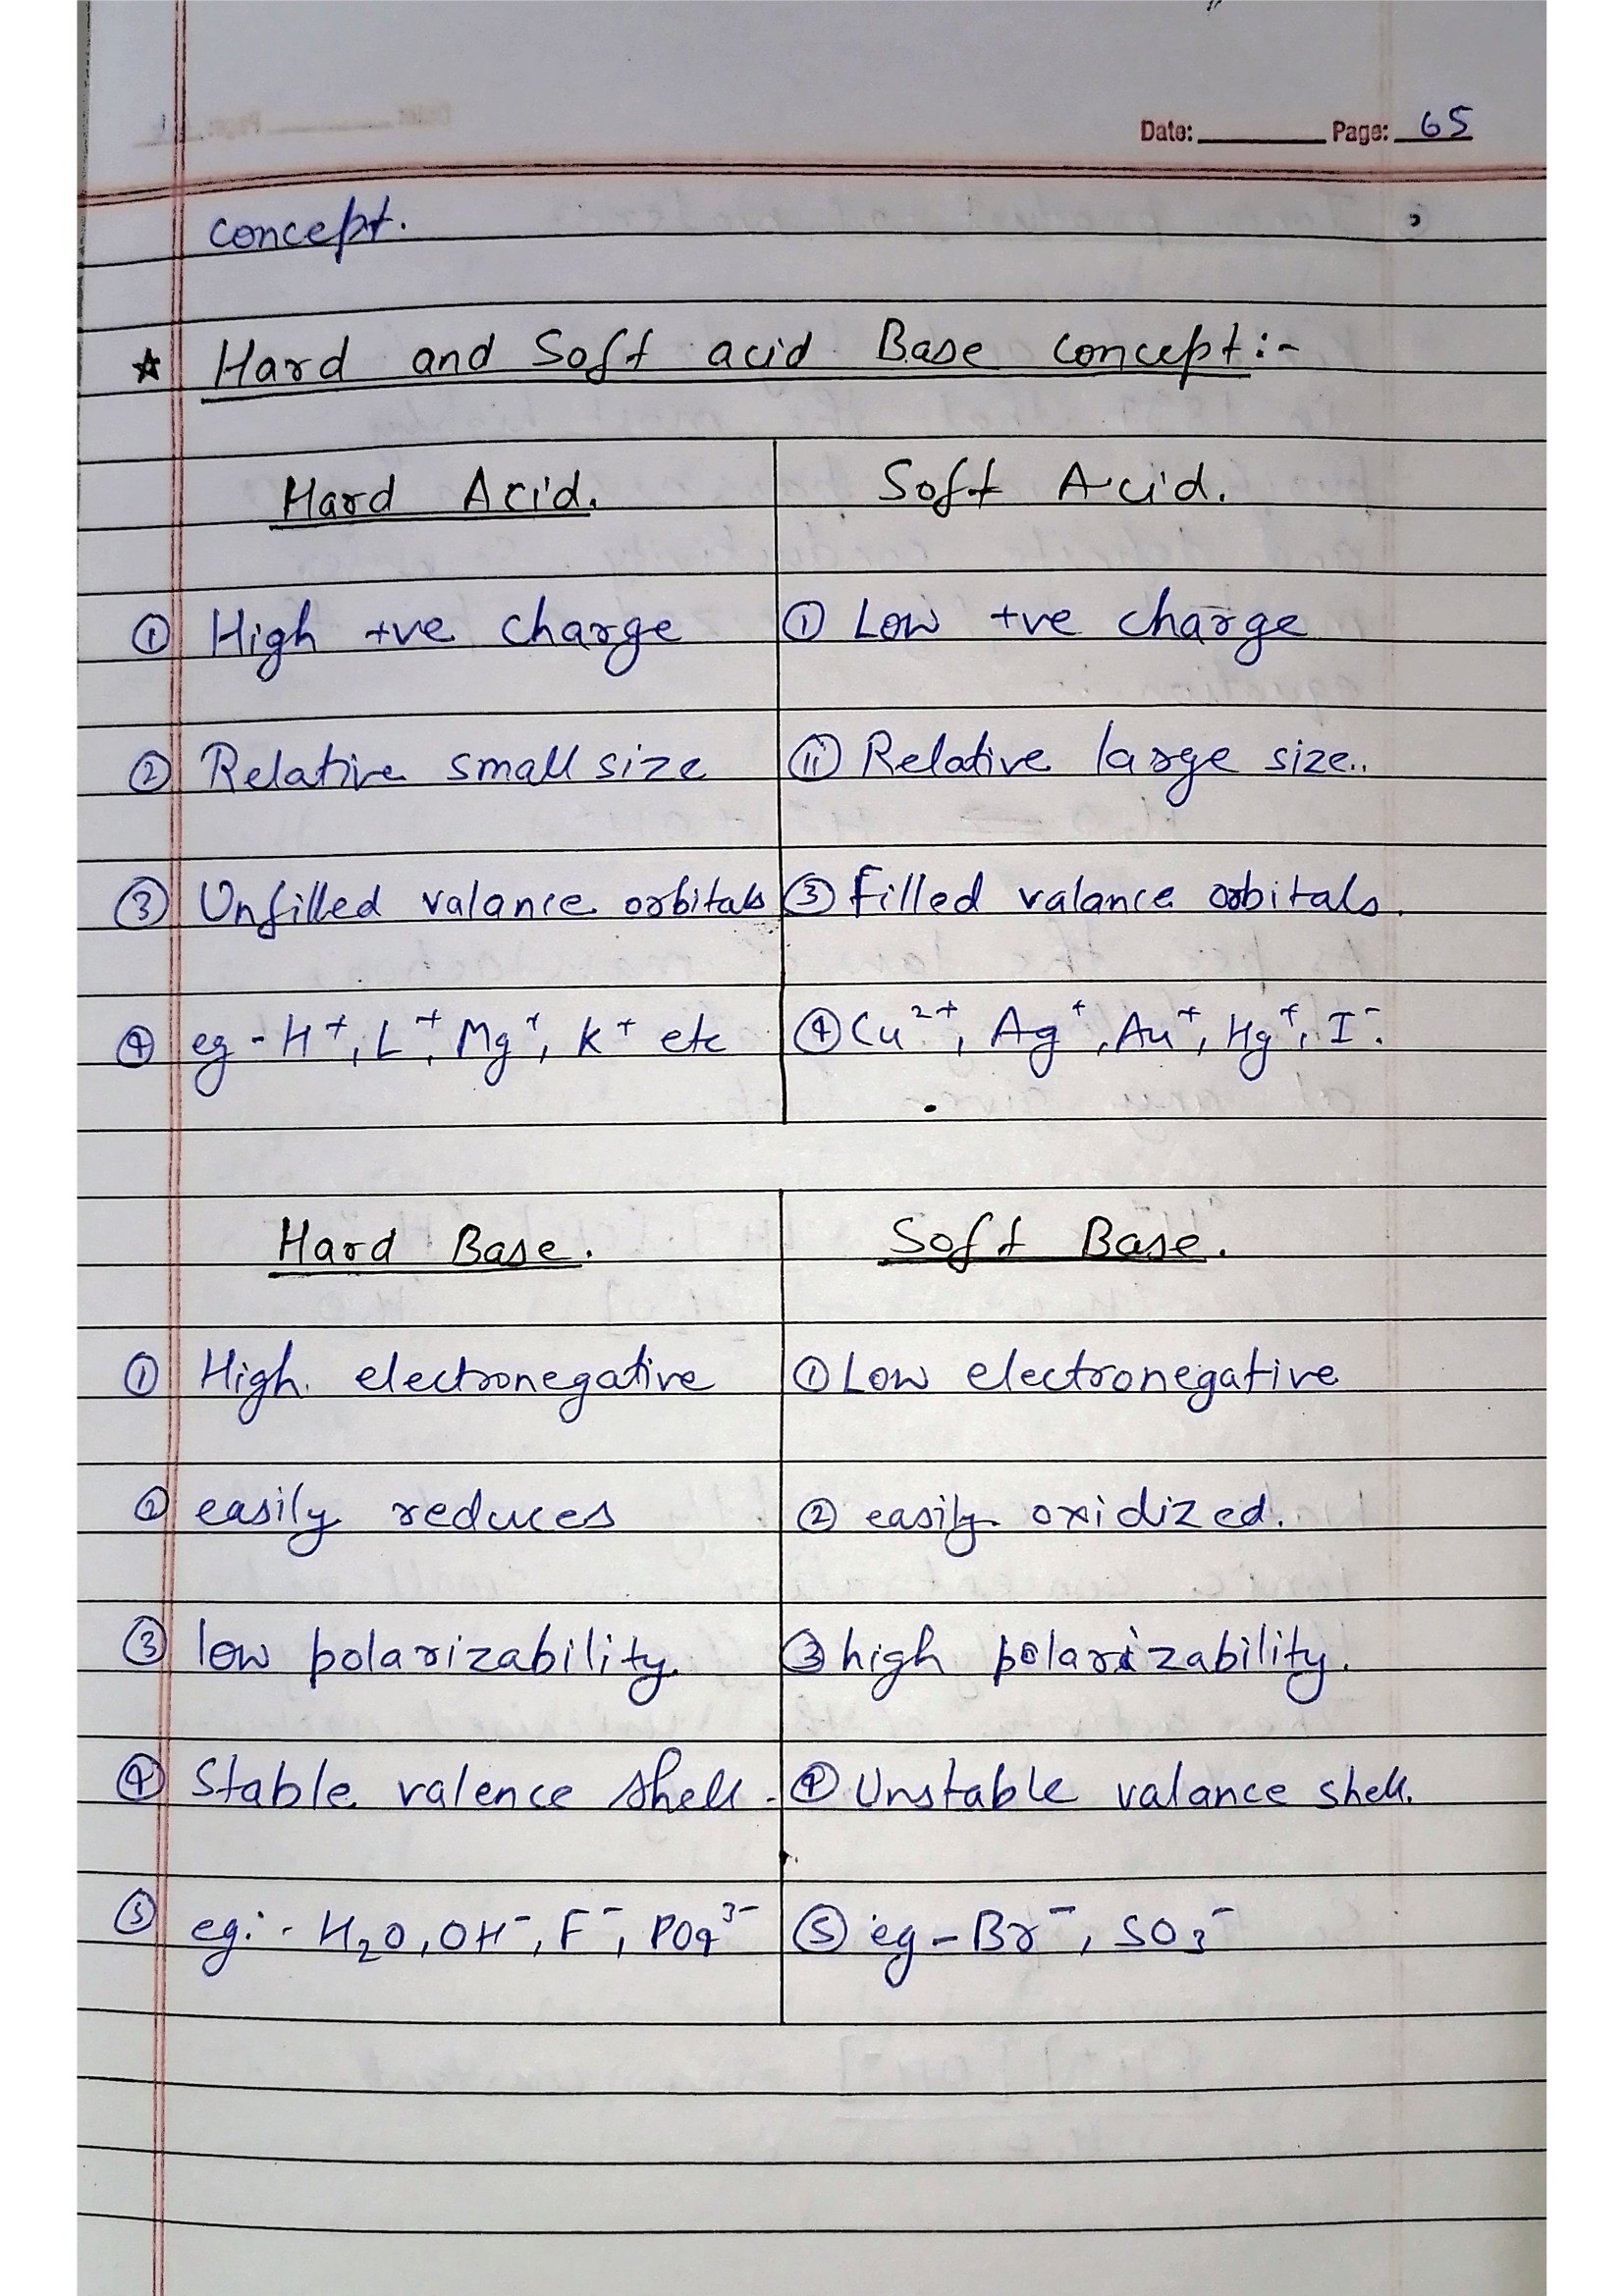 Date: Page: 65
concept.
☆ Hard and Soft acid Base concept:-
Hard Acid. Soft Acid.
① High +ve charge ① Low +ve charge
② Relative small size ⓘⓘ Relative large size..
③ Unfilled valance orbitals ③ filled valance orbitals.
④ eg - H⁺, L⁺, Mg⁺, K⁺ etc ④ Cu²⁺, Ag⁺, Au⁺, Hg⁺, I⁻.
Hard Base. Soft Base.
① High electronegative ① Low electronegative
② easily reduces ② easily oxidized.
③ low polarizability. ③ high polarizability.
④ Stable valence shell. ④ Unstable valance shell.
⑤ eg:- H₂O, OH⁻, F⁻, PO₄³⁻ ⑤ eg - Br⁻, SO₃⁻